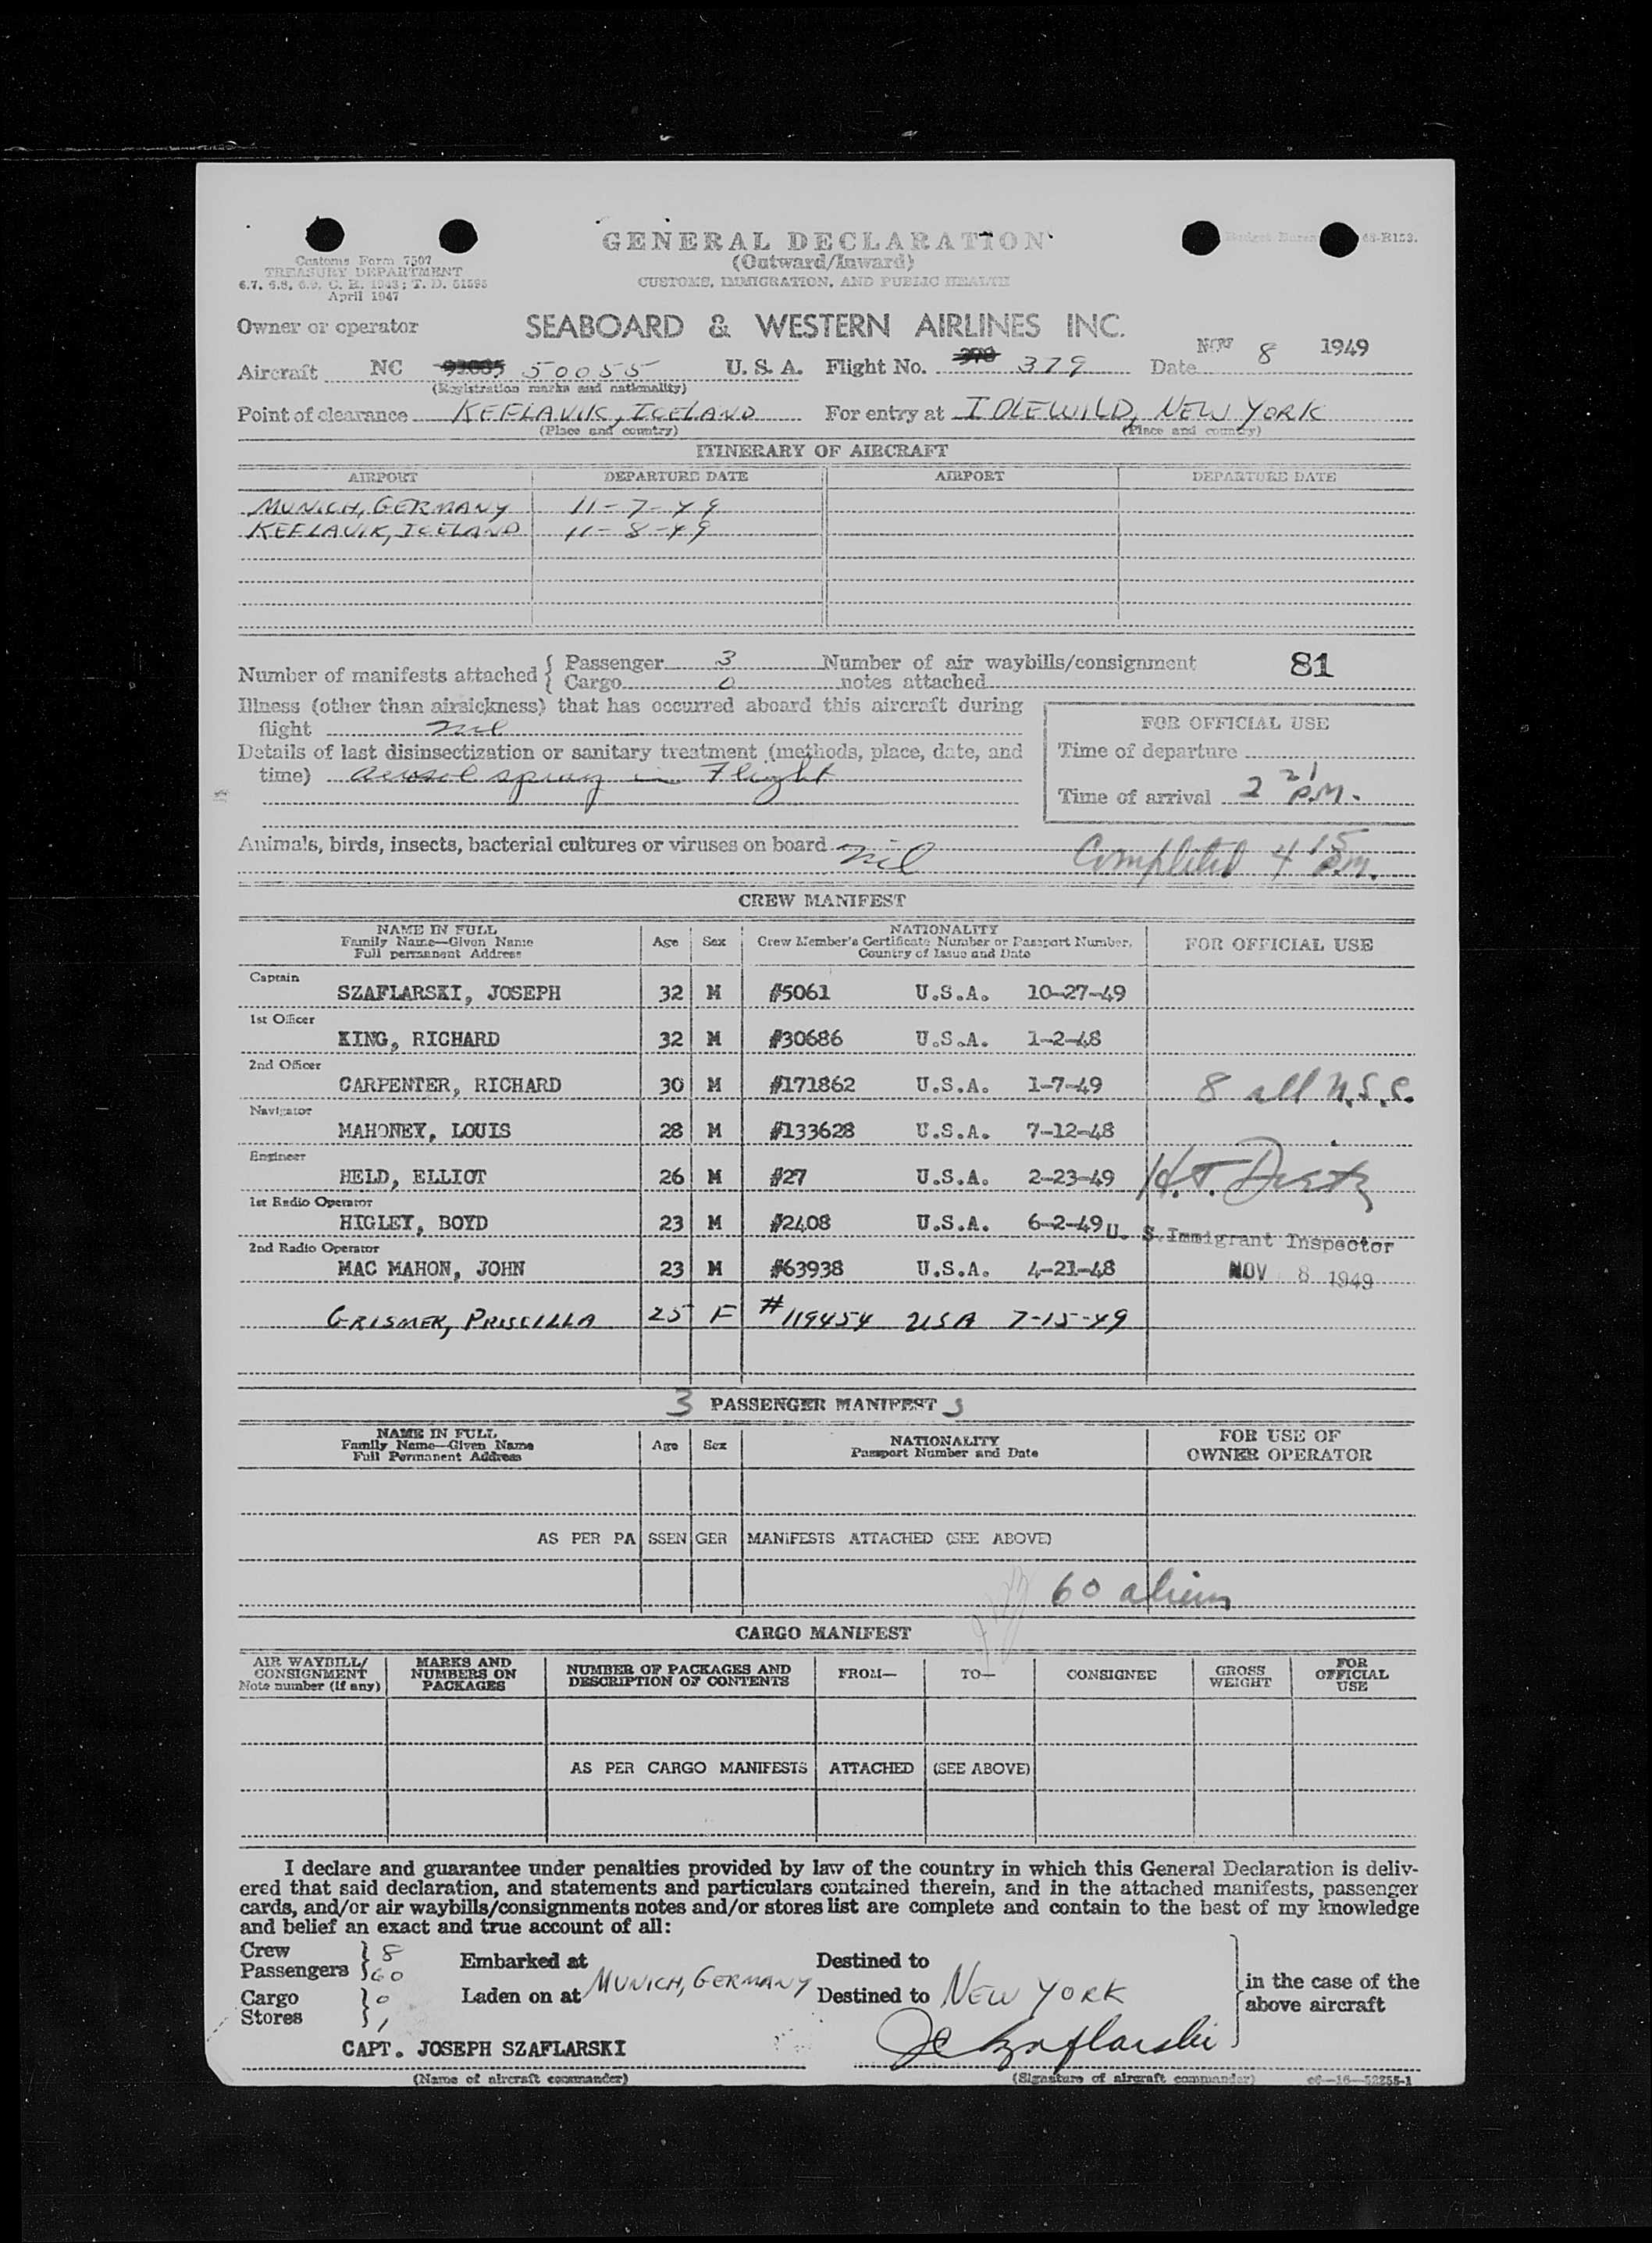 GENERAL DECLARATION
(Outward/Inward)
CUSTOMS, IMMIGRATION, AND PUBLIC HEALTH
Customs Form 7507
TREASURY DEPARTMENT
6.7, 6.8, 6.9, C. R. 1943; T. D. 51595
April 1947
48-R153.
Owner or operator SEABOARD & WESTERN AIRLINES INC.
Aircraft NC 50055 U. S. A. Flight No. 379 Date NOV 8 1949
(Registration marks and nationality)
Point of clearance KEFLAVIK, ICELAND For entry at IDLEWILD, NEW YORK
(Place and country) (Place and country)
ITINERARY OF AIRCRAFT
AIRPORT DEPARTURE DATE AIRPORT DEPARTURE DATE
MUNICH, GERMANY 11-7-49
KEFLAVIK, ICELAND 11-8-49
Number of manifests attached { Passenger 3 Number of air waybills/consignment 81
Cargo 0 notes attached
Illness (other than airsickness) that has occurred aboard this aircraft during
flight nil
Details of last disinsectization or sanitary treatment (methods, place, date, and
time) aerosol spray in Flight
FOR OFFICIAL USE
Time of departure
Time of arrival 2 21 P.M.
Animals, birds, insects, bacterial cultures or viruses on board nil
Completed 4 15 P.M.
CREW MANIFEST
NAME IN FULL
Family Name—Given Name
Full permanent Address
Age Sex
NATIONALITY
Crew Member's Certificate Number or Passport Number,
Country of Issue and Date
FOR OFFICIAL USE
Captain
SZAFLARSKI, JOSEPH 32 M #5061 U.S.A. 10-27-49
1st Officer
KING, RICHARD 32 M #30686 U.S.A. 1-2-48
2nd Officer
CARPENTER, RICHARD 30 M #171862 U.S.A. 1-7-49
8 all U.S.C.
Navigator
MAHONEY, LOUIS 28 M #133628 U.S.A. 7-12-48
Engineer
HELD, ELLIOT 26 M #27 U.S.A. 2-23-49
1st Radio Operator
HIGLEY, BOYD 23 M #2408 U.S.A. 6-2-49
U. S. Immigrant Inspector
2nd Radio Operator
MAC MAHON, JOHN 23 M #63938 U.S.A. 4-21-48
NOV 8 1949
GRISMER, PRISCILLA 25 F #119454 USA 7-15-49
3 PASSENGER MANIFEST S
NAME IN FULL
Family Name—Given Name
Full Permanent Address
Age Sex
NATIONALITY
Passport Number and Date
FOR USE OF
OWNER OPERATOR
AS PER PASSENGER MANIFESTS ATTACHED (SEE ABOVE)
60 aliens
CARGO MANIFEST
AIR WAYBILL/
CONSIGNMENT
Note number (if any)
MARKS AND
NUMBERS ON
PACKAGES
NUMBER OF PACKAGES AND
DESCRIPTION OF CONTENTS
FROM— TO— CONSIGNEE
GROSS
WEIGHT
FOR
OFFICIAL
USE
AS PER CARGO MANIFESTS ATTACHED (SEE ABOVE)
I declare and guarantee under penalties provided by law of the country in which this General Declaration is deliv-
ered that said declaration, and statements and particulars contained therein, and in the attached manifests, passenger
cards, and/or air waybills/consignments notes and/or stores list are complete and contain to the best of my knowledge
and belief an exact and true account of all:
Crew 8
Passengers 60
Embarked at Destined to
MUNICH, GERMANY NEW YORK
Cargo 0
Stores 1
Laden on at Destined to
in the case of the
above aircraft
CAPT. JOSEPH SZAFLARSKI
J Szaflarski
(Name of aircraft commander) (Signature of aircraft commander) 16—52255-1